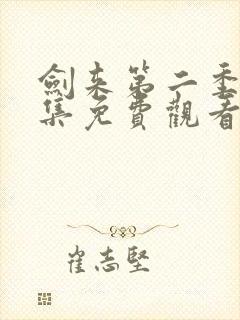 劍来第二季
集免費觀看
崔志堅